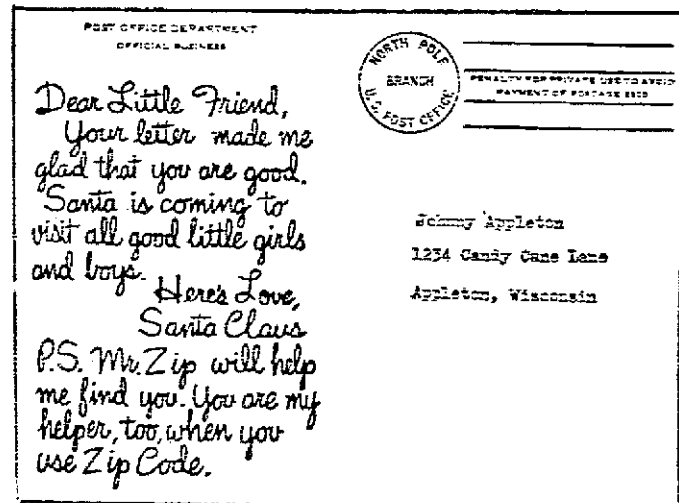 POST OFFICE DEPARTMENT
OFFICIAL BUSINESS
Dear Little Friend,
Your letter made me
glad that you are good.
Santa is coming to
visit all good little girls
and boys.
Here's Love,
Santa Claus
P.S. Mr. Zip will help
me find you. You are my
helper, too, when you
use Zip Code.
NORTH POLE
BRANCH
U.S. POST OFFICE
PENALTY FOR PRIVATE USE TO AVOID
PAYMENT OF POSTAGE $300
Johnny Appleton
1234 Candy Cane Lane
Appleton, Wisconsin